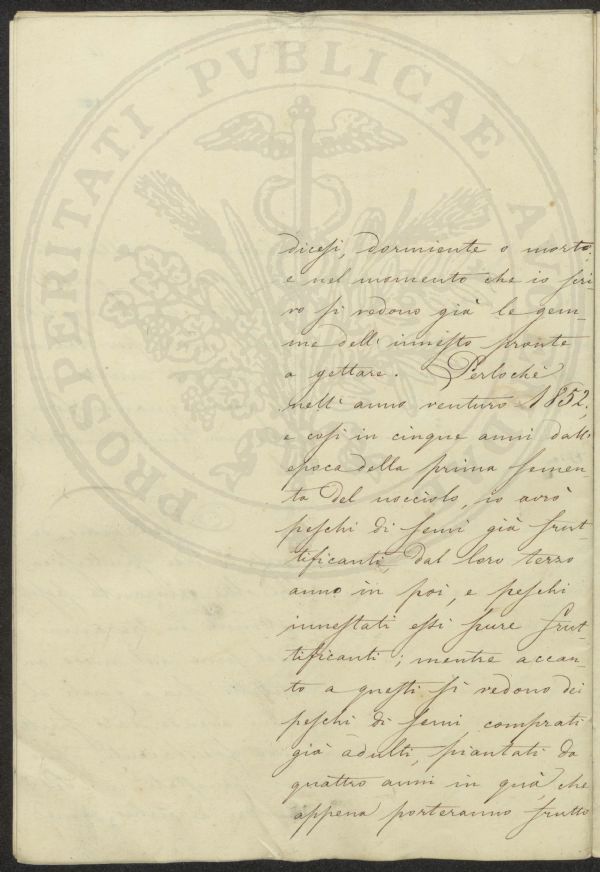 PROSPERITATI PVBLICAE A
dicesi, dormiente o morto;
e nel momento che io scri-
vo si vedono già le gem-
me dell' innesto pronte
a gettare. Perlochè
nell' anno venturo 1852,
e così in cinque anni dall'
epoca della prima semen-
ta del nocciolo, io avrò
peschi di semi già frut-
tificanti, dal loro terzo
anno in poi, e peschi
innestati essi pure frut-
tificanti; mentre accan-
to a questi si vedono dei
peschi di semi, comprati
già adulti, piantati da
quattro anni in quà, che
appena porteranno frutto